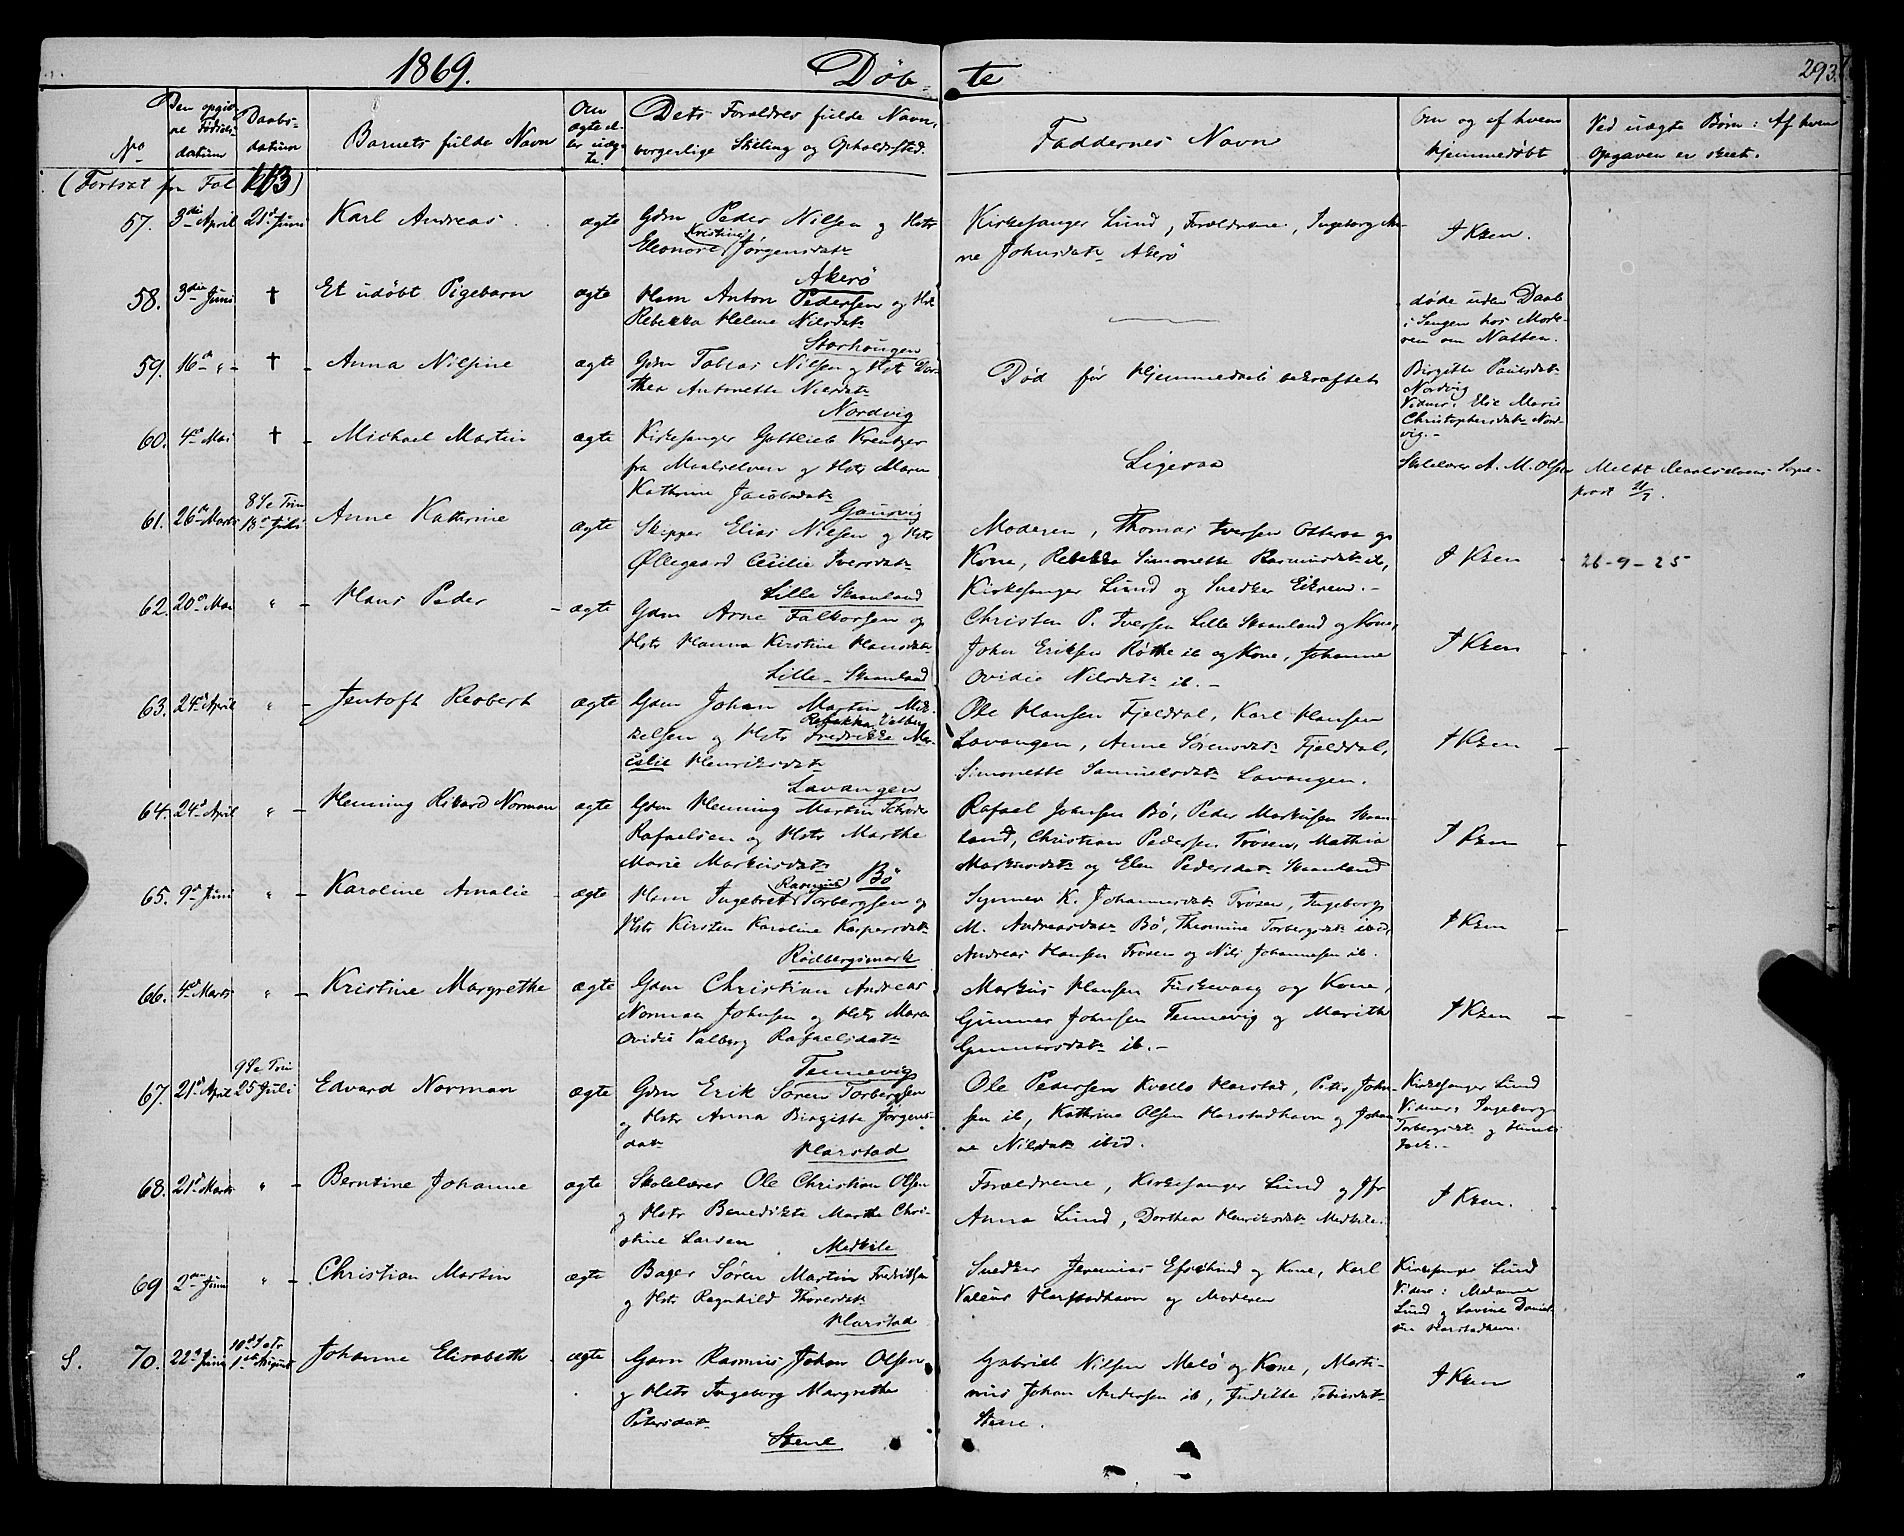 1869. Døb- te 293.
No
Den opgiv-
ne Fødsels-
datum
Daabs-
datum
Barnets fulde Navn
Om
ægte el-
ler uæg-
te.
Dets Forældres fulde Navn,
borgerlige Stilling og Opholdssted.
Faddernes Navn
Om og af hvem
hjemmedøbt
Ved uægte Børn: Af hvem
Opgaven er skeet.
(Fortsat fra Fol 113)
57. 3die April 21d Juni Karl Andreas ægte
Gdm Peder Nilsen og Hstr
Kristine
Eleonore Jørgensdatr
Akerø
Kirkesanger Lund, Forældrene, Ingeborg An-
ne Johnsdatr Akerø
I Kken.
58. 3die Juni † Et udøbt Pigebarn ægte
Hsm Anton Pedersen og Hstr
Rebekka Helene Nilsdatr
Storhougen
døde uden Daab
i Sengen hos Mode-
ren om Natten.
59. 16d " † - Anna Nilsine ægte
Gdm Tobias Nilsen og Hstr Doro-
thea Antonette Nilsdatr
Nordvig
Død før Hjemmedaab bekræftet
Birgitte Paulsdatr
Nordvig
Vidner: Else Marie
Christophersdatr Nord-
vig.-
60. 4de Mai † - Michael Martin ægte
Kirkesanger Gottlieb Kreutzer
fra Maalselven og Hstr Maren
Kathrine Jacobsdatr
Gausvig
Ligesaa
Skolelærer A. M. Olsen
Meldt Maalselvens Sogne-
prest 21/7.
61. 26de Marts 8 Se Trin
18d Juli Anne Kathrine ægte
Skipper Elias Nilsen og Hstr
Øllegaard Cecilie Iversdatr
Lille Skaanland
Moderen, Thomas Iversen Otteraa og
Kone, Rebekka Simonette Rasmusdatr ib,
Kirkesanger Lund og Snedker Eiknem.-
I Kken
26-9-25
62. 20de Mai " - Hans Peder - ægte
Gdm Arne Falkorsen og
Hstr Hanna Kirstine Hansdatr
Lille-Skaanland
Christen P. Iversen Lille Skaanland og Kone,
John Eriksen Røthe ib og Kone, Johanne
Ovidie Nilsdatr ib.-
I Kken
63. 24d April " - Jentoft Robert ægte
Gdm Johan Martin Mik-
kelsen og Hstr Fredrikke Mar-
Rebekka Valborg
celie Henriksdatr
Lavangen
Ole Hansen Fjeldal, Karl Hansen
Lavangen, Anne Sørensdatr Fjeldal,
Simonette Samuelsdatr Lavangen.
I Kken
64. 24d April " - Henning Rikard Norman ægte
Gdm Henning Martin Schjder
Rafaelsen og Hstr Marthe
Marie Markusdatr
Bö
Rafael Johnsen Bö, Peder Markusen Skaan-
land, Christian Pedersen Trøsen, Mathia
Markusdatr og Elen Pedersdatr Skaanland
I Kken
65. 9d Juni " - Karoline Amalie - ægte
Rasmus
Hsm Ingebret Torbergsen og
Hstr Kirsten Karoline Kaspersdatr
Rödbergsmark
Synner K. Johannesdatr Trøsen, Ingeborg
M. Andreasdatr Bö, Thomine Torbergsdatr ibid,
Andreas Hansen Trøsen og Nils Johannesen ib.
I Kken
66. 4de Marts " - Kristine Margrethe ægte
Gdm Christian Andreas
Norman Johnsen og Hstr Maren
Ovidie Valborg Rafaelsdatr
Tennevig
Markus Hansen Fuskevaag og Kone,
Gunner Johnsen Tennevig og Marith
Gunnersdatr ib.-
I Kken
67. 21d April 9 Se Trin
25 Juli Edvard Norman ægte
Gdm Erik Søren Torbergsen
og Hstr Anna Birgitte Jørgens-
datr
Harstad
Ole Pedersen Kvello Harstad, Peter John-
sen ib, Kathrine Olsen Harstadhavn og Johan-
ne Nilsdatr ibid.
Kirkesanger Lund
Vidner: Ingeborg
Torbergsdatr og
68. 21d Marts " - Berntine Johanne ægte
Skolelærer Ole Christian Olsen
og Hstr Benedikte Marthe Chri-
stine Larsen
Medkile
Forældrene, Kirkesanger Lund og Jfr
Anna Lund, Dorthea Henriksdatr Medkile.
I Kken.
69 2den Juni " - Christian Martin ægte
Bager Søren Martin Fredriksen
og Hstr Ragnhild Thoresdatr
Harstad
Snedker Jeremias Efskind og Kone, Karl
Valeur Harstadhavn og Moderen
Kirkesanger Lund
Vidner: Madame
Lund og Lovine Daniel-
sen Harstadhavn.
S. 70. 22d Juni 10d S. e Tr
1st August Johanne Elisabeth - ægte
Gdm Rasmus Johan Olsen
og Hstr Ingeborg Margrethe
Petersdatr
Stene
Gabriel Nilsen Melø og Kone, Marti-
nus Johan Andersen ib, Judithe Tobiasdatr
Stene.
I Kken